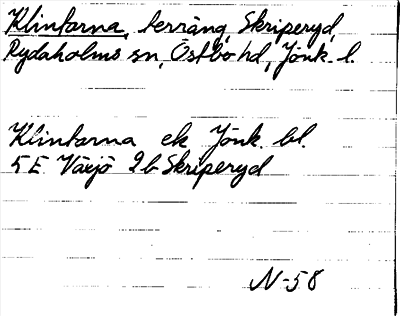 Klintarna, terräng, Skriperyd,
Rydaholms sn, Östbo hd, Jönk. l.
Klintarna ek Jönk. bl.
5 E Växjö 9 b Skriperyd
N-58